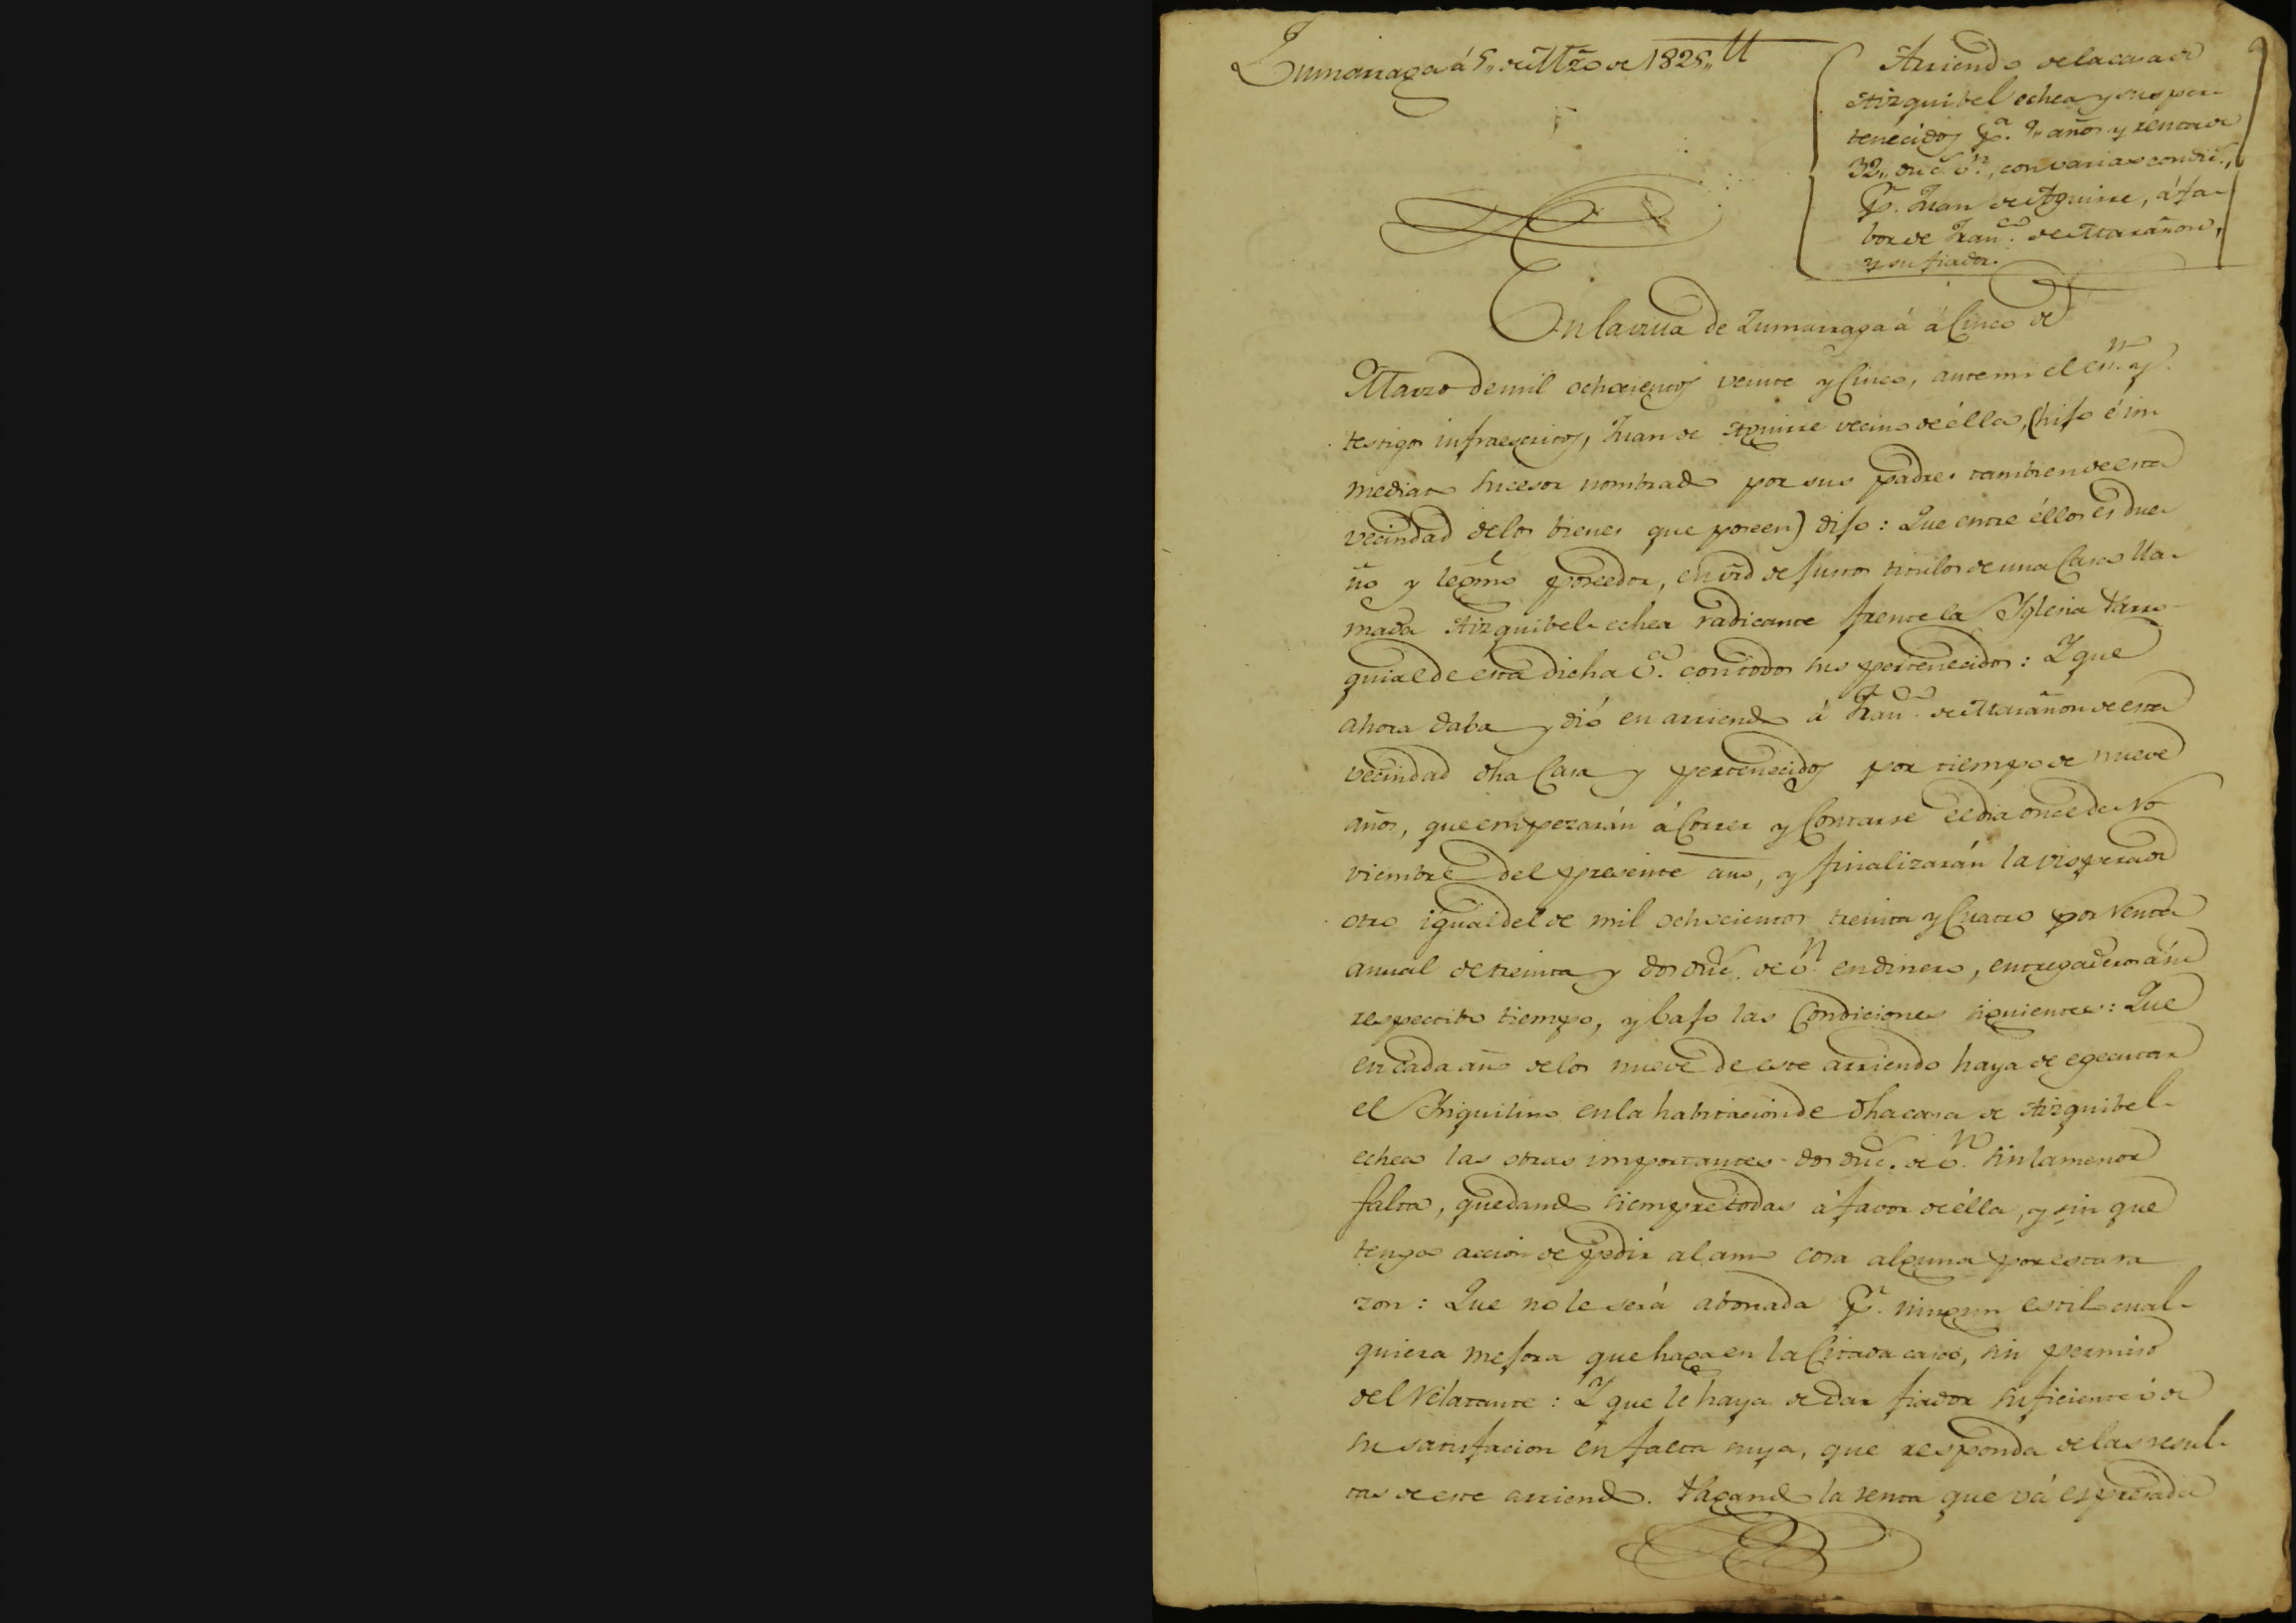 Zumarraga á 5,, de Mzo de 1825,,
Arriendo de la casa de
Aizquibel echea y sus per-
tenecidos pa. 9,, años y renta de
32,, duc.s vn., con varias condic.s,
pr. Juan de Aguirre, á fa-
bor de Franco. de Marañon,
y su fiador.
En la villa de Zumarraga á á Cinco de
Marzo de mil ochocientos veinte y Cinco, ante mi el esno. y
testigos infraescritos, Juan de Aguirre vecino de élla, (hijo é in-
mediato sucesor nombrado por sus padres tambien de esta
vecindad de los bienes que poseen) dijo: Que entre éllos es due-
ño y legmo poseedor, en vrd de justos titulos de una Casa lla-
mada Aizquibel-echea radicante frente la Iglesia Parro-
quial de esta dicha va. con todos sus pertenecidos: Y que
ahora daba y dió en arriendo á Franco. de Marañon de esta
vecindad dha Casa y pertenecidos por tiempo de nueve
años, que empezarán á Correr y Contarse el dia once de No-
viembre del presente año, y finalizarán la vispera de
otro igual del de mil ochocientos treinta y Cuatro por renta
anual de treinta y dos duc.s de vn. en dinero, entregaderos á su
respectibo tiempo, y bajo las Condiciones siguientes: Que
en cada año de los nueve de este arriendo haya de egecutar
el Inquilino en la habitacion de dha casa de Aizquibel-
echea las obras importantes dos duc.s de vn. sin la menor
falta, quedando siempre todas á favor de élla, y sin que
tenga accion de pedir al amo cosa alguna por esta ra-
zon: Que no le será abonada pr. ningun estilo cual-
quiera mejora que haga en la Citada casa, sin permiso
del Relatante: Y que le haya de dar fiador suficiente ó de
su satisfacion en falta suya, que responda de las resul-
tas de este arriendo. Pagando la renta que vá espresada